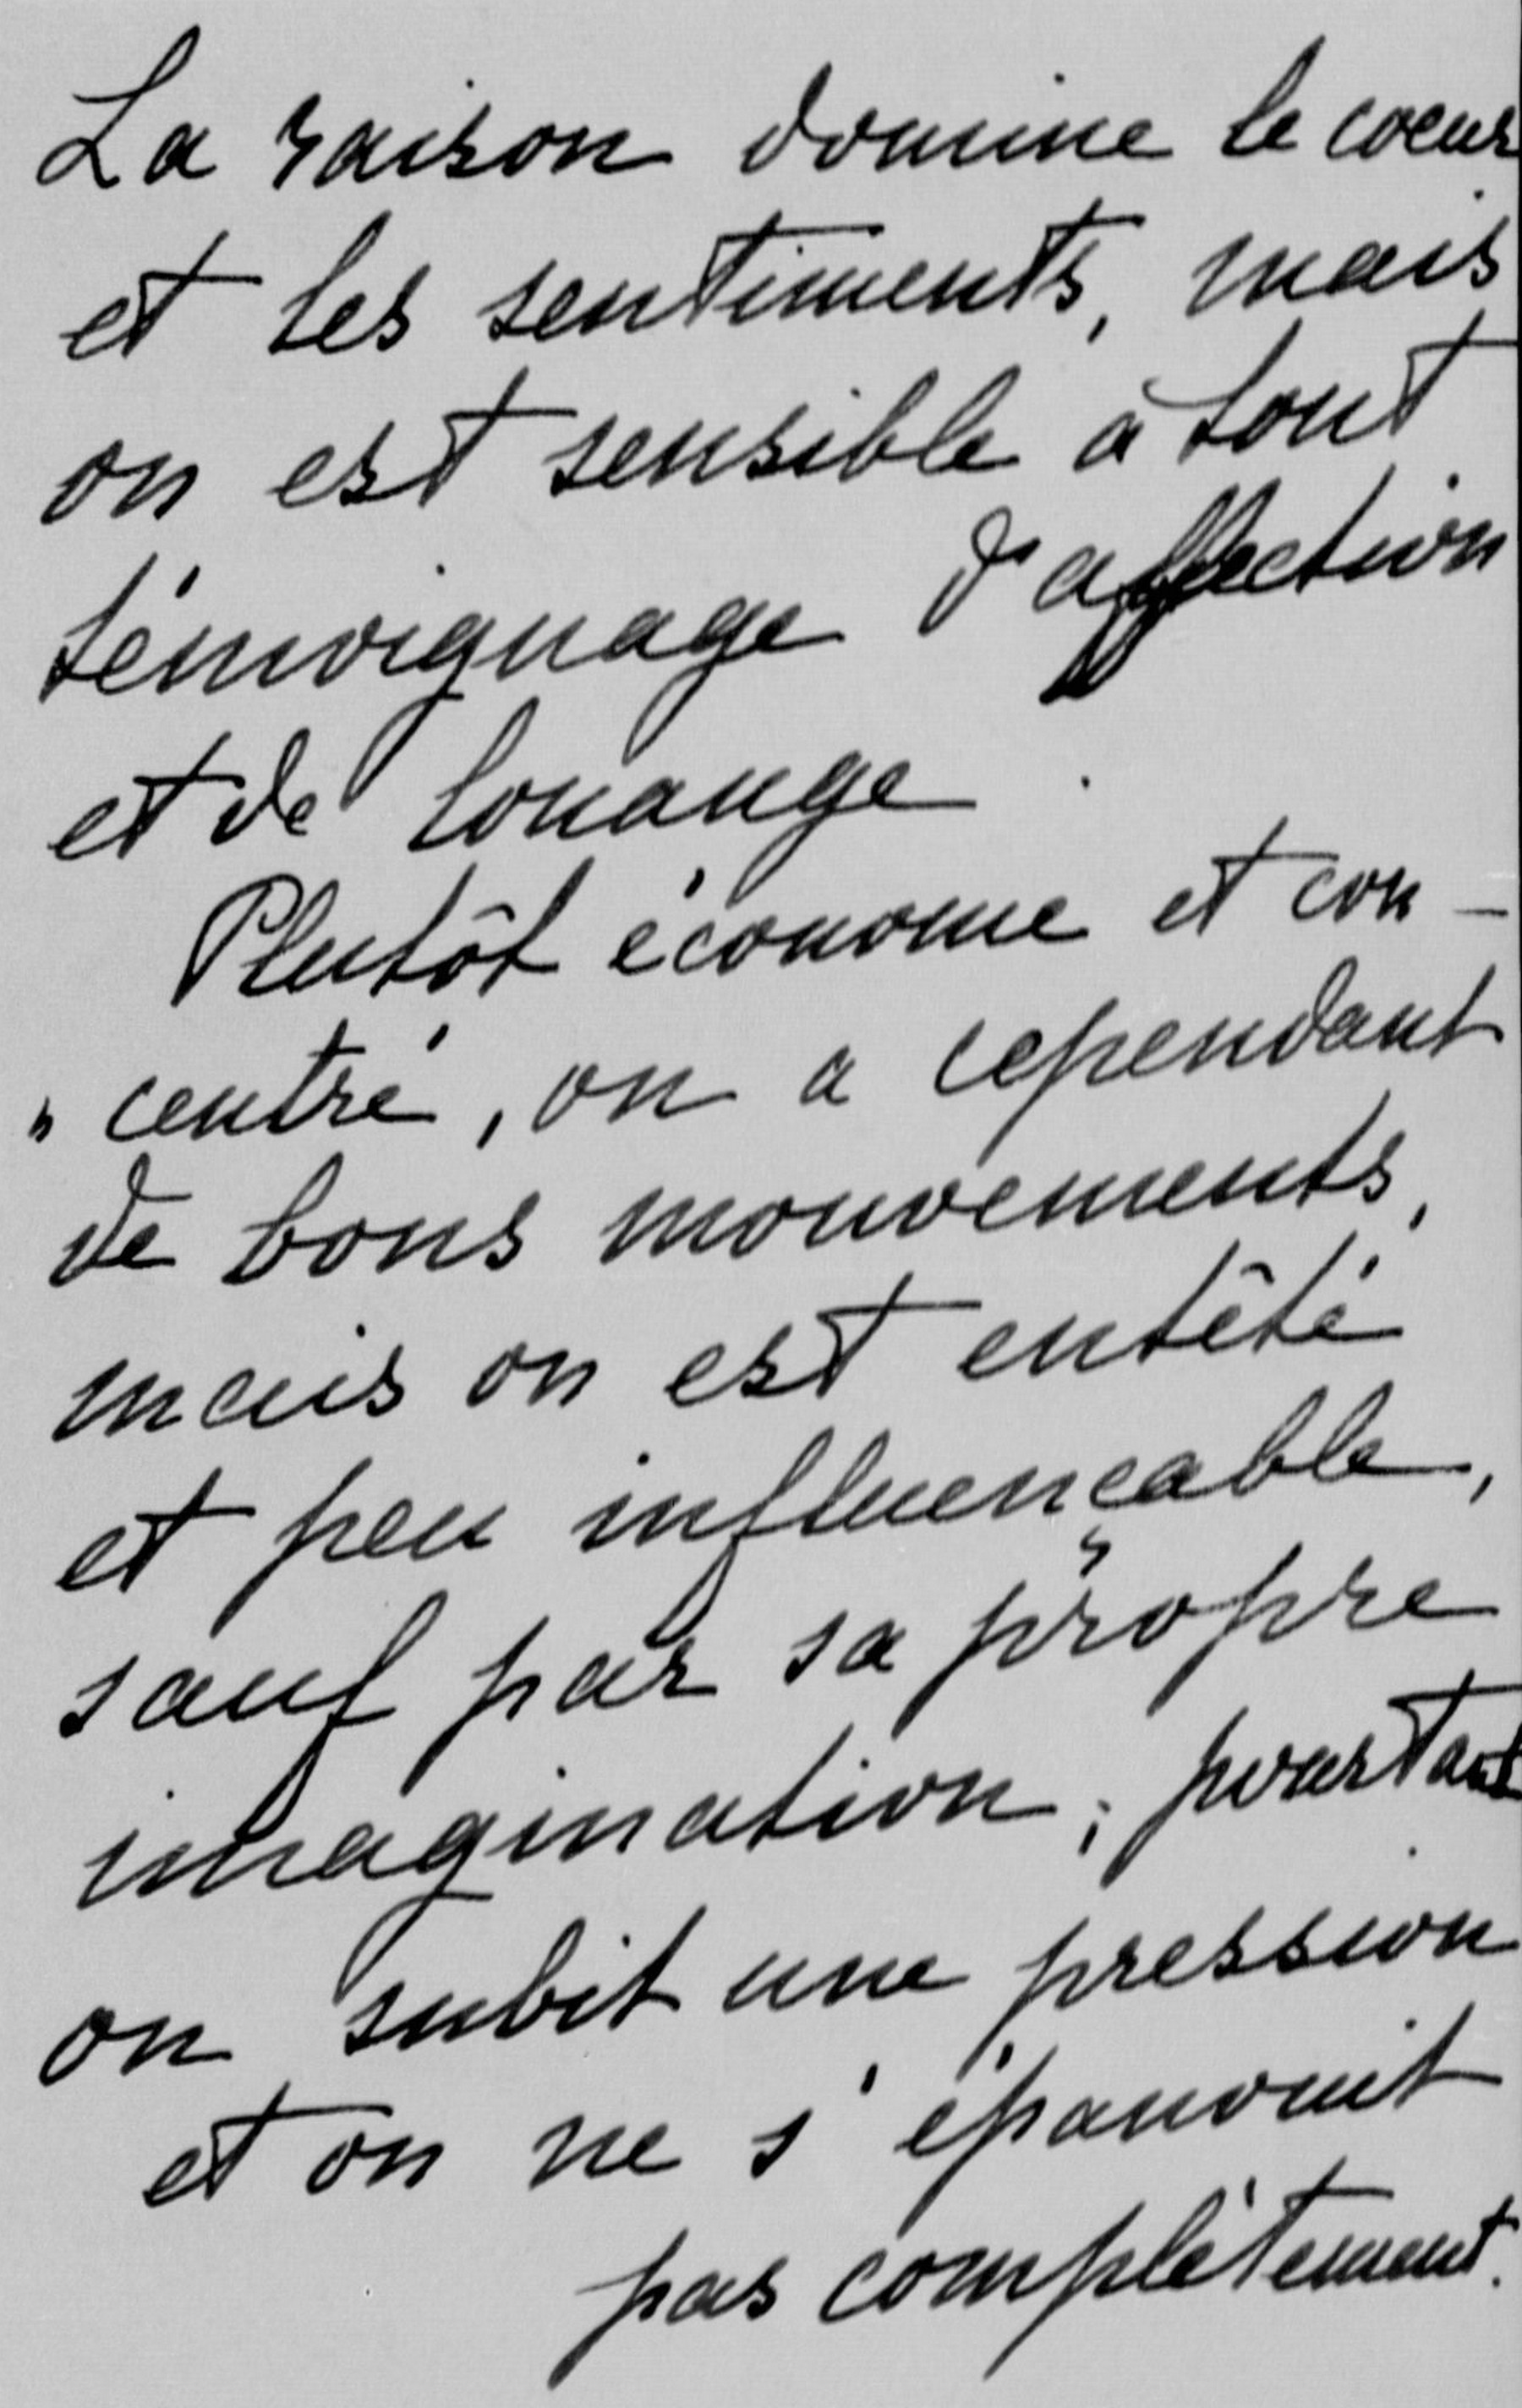 La raison domine le coeur
et les sentiments, mais
on est sensible à tout
témoignage d'affection
et de louange
Plutôt économe et con-
" centré, on a cependant
de bons mouvements,
mais on est entêté
et peu influençable,
sauf par sa propre
imagination; pourtant
on subit une pression
et on ne s'épanouit
pas complètement.